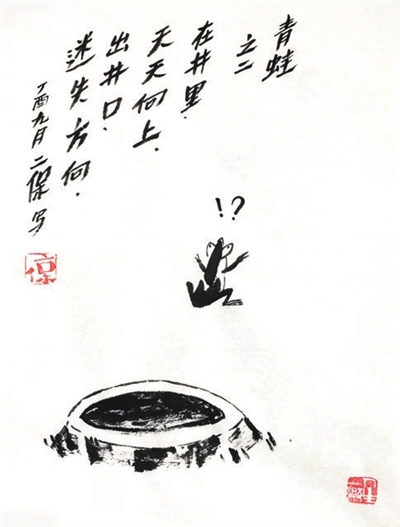 青蛙
之二
在井里.
天天向上.
出井口.
迷失方向.
丁酉九月二保写.
!?